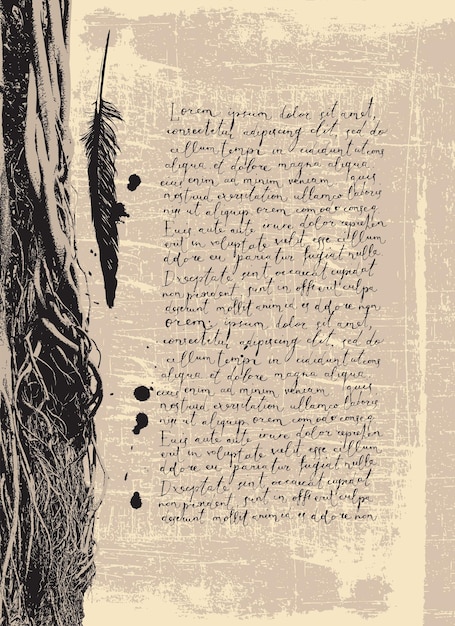 Lorem ipsum dolor sit amet,
consectetur adipiscing elit, sed do
cillum tempor in cididunt ut
aliqua et dolore magna aliqua
enim ad minim veniam, quis
nostrud exercitation ullamco laboris
nisi ut aliquip orem comodo conse
Euis aute aute irure dolor reprehen
erit in voluptate velit esse cillum
dolore eu pariatur fugiat nulla
Dxceptate sint occaecat cupidat
non proident, sunt in officerit culpa
deserunt mollit animid es dolor non
orem, ipsum dolor sit amet,
consectetur adipiscing elit, sed do
cillum tempor in cididunt ut
aliqua et dolore magna aliqua
enim ad minim veniam, quis
nostrud exercitation ullamco laboris
nisi ut aliquip orem comodo conse
Euis aute aute irure dolor reprehen
erit in voluptate velit esse cillum
dolore eu pariatur fugiat nulla
Dxceptate sint occaecat cupidat
non proident, sunt in officerit culpa
deserunt mollit animid es dolor non